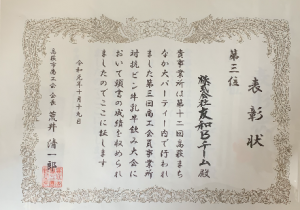 表彰状
第三位
株式会社友和Bチーム殿
貴事業所は第十二回高萩まち
なか大パーティー内で行われ
ました第三回商工会員事業所
対抗ビン牛乳早飲み大会に
おいて頭書の成績を収められ
ましたのでここに証します
令和元年十月十九日
高萩市商工会会長 荒井清一郎